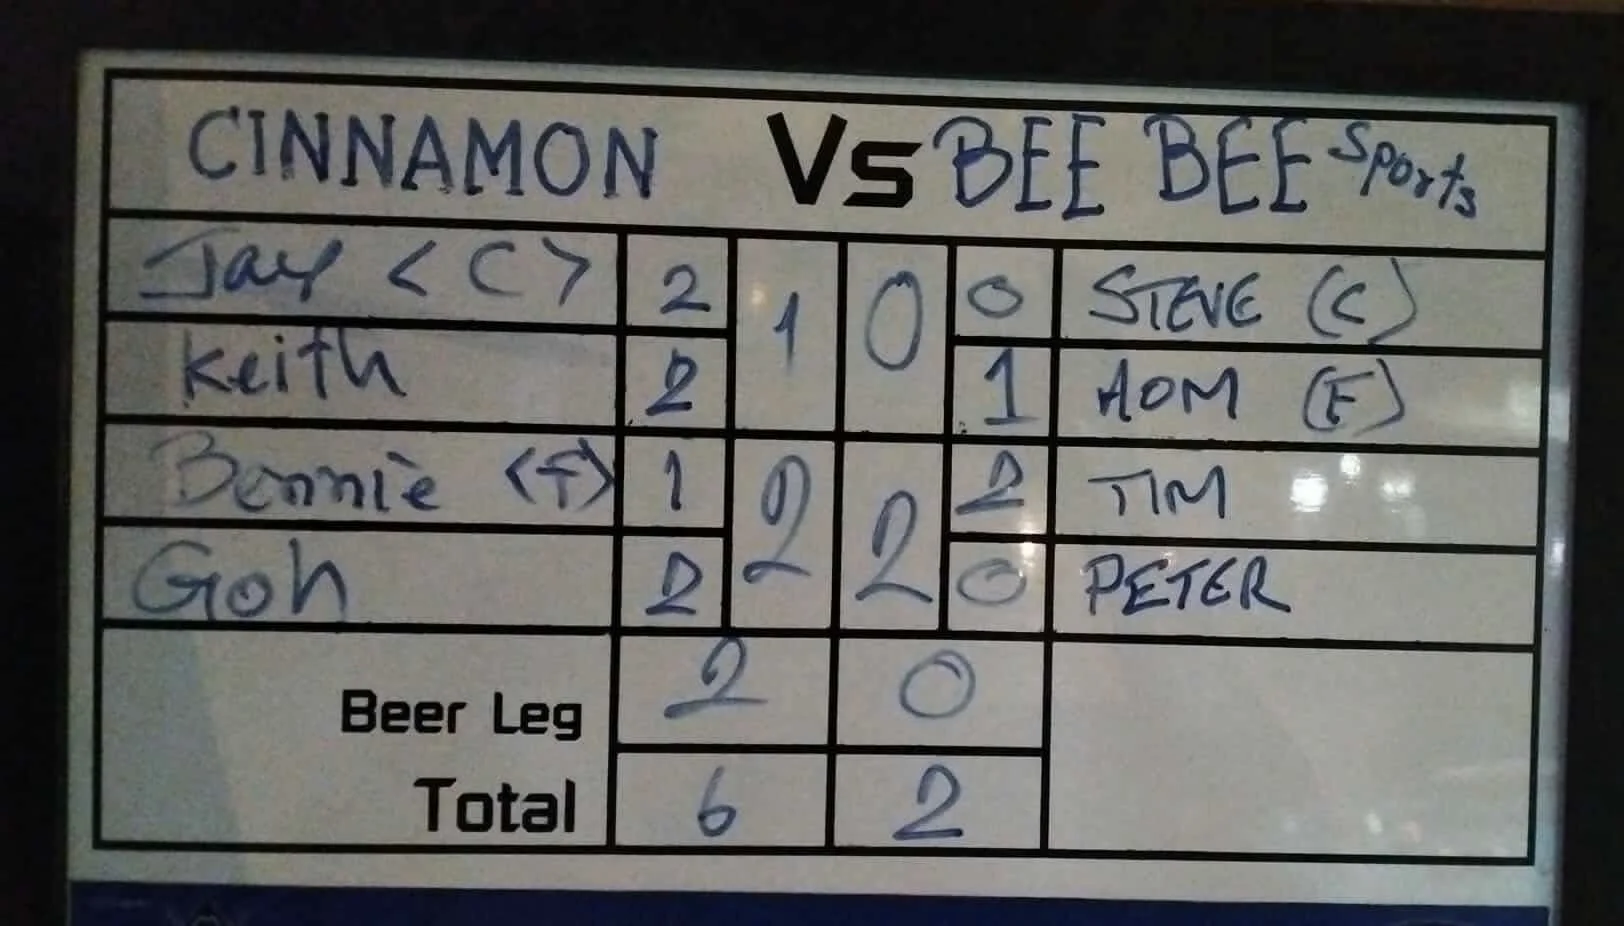 CINNAMON Vs BEE BEE Sports
Jay <C> 2 1 0 0 STEVE (C)
Keith 2 1 AOM (F)
Bennie <F> 1 2 2 2 TIM
Goh 2 0 PETER
Beer Leg 2 0
Total 6 2